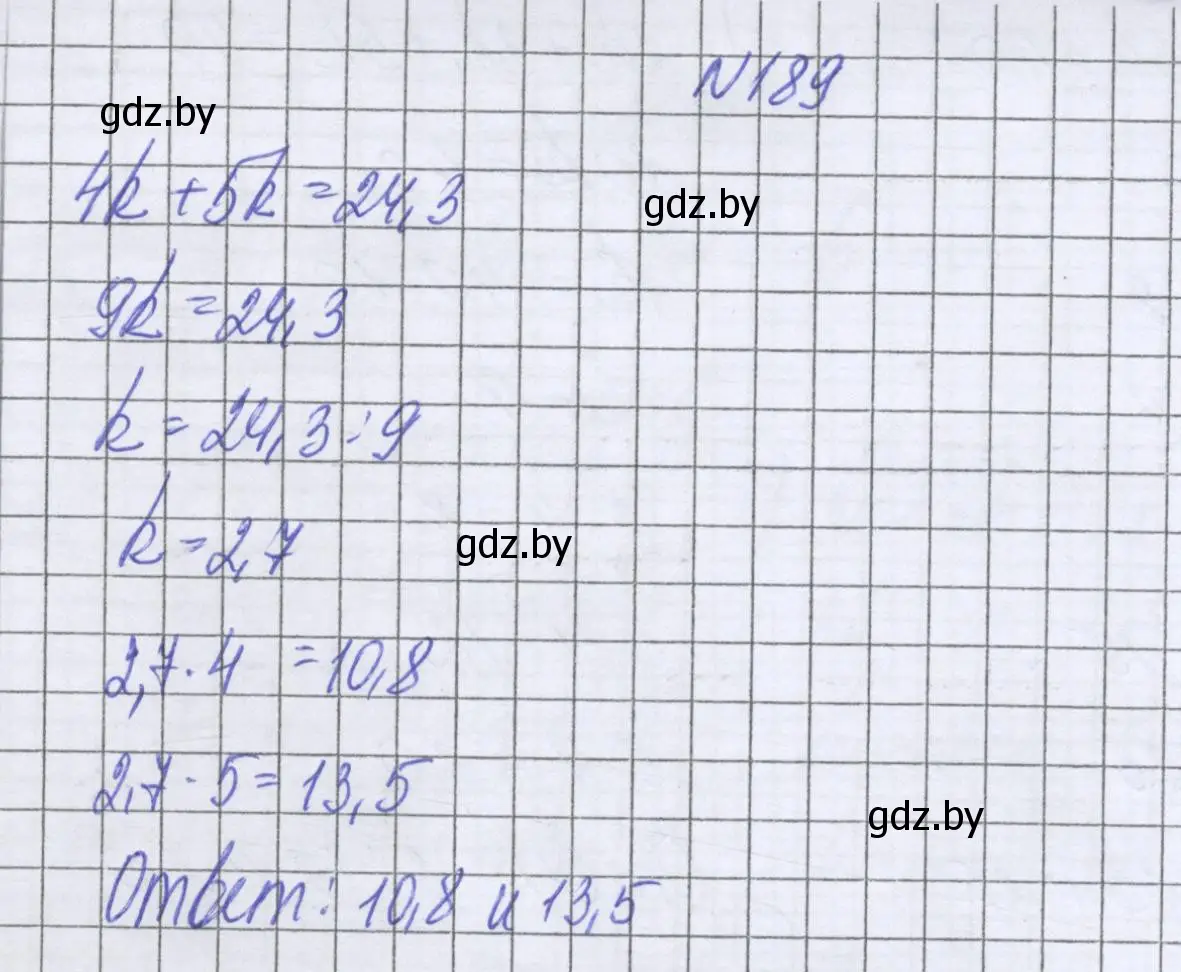 N189
gdz.by
4k + 5k = 24,3
gdz.by
9k = 24,3
k = 24,3 : 9
k = 2,7
gdz.by
2,7 · 4 = 10,8
2,7 · 5 = 13,5
gdz.by
Ответ: 10,8 и 13,5